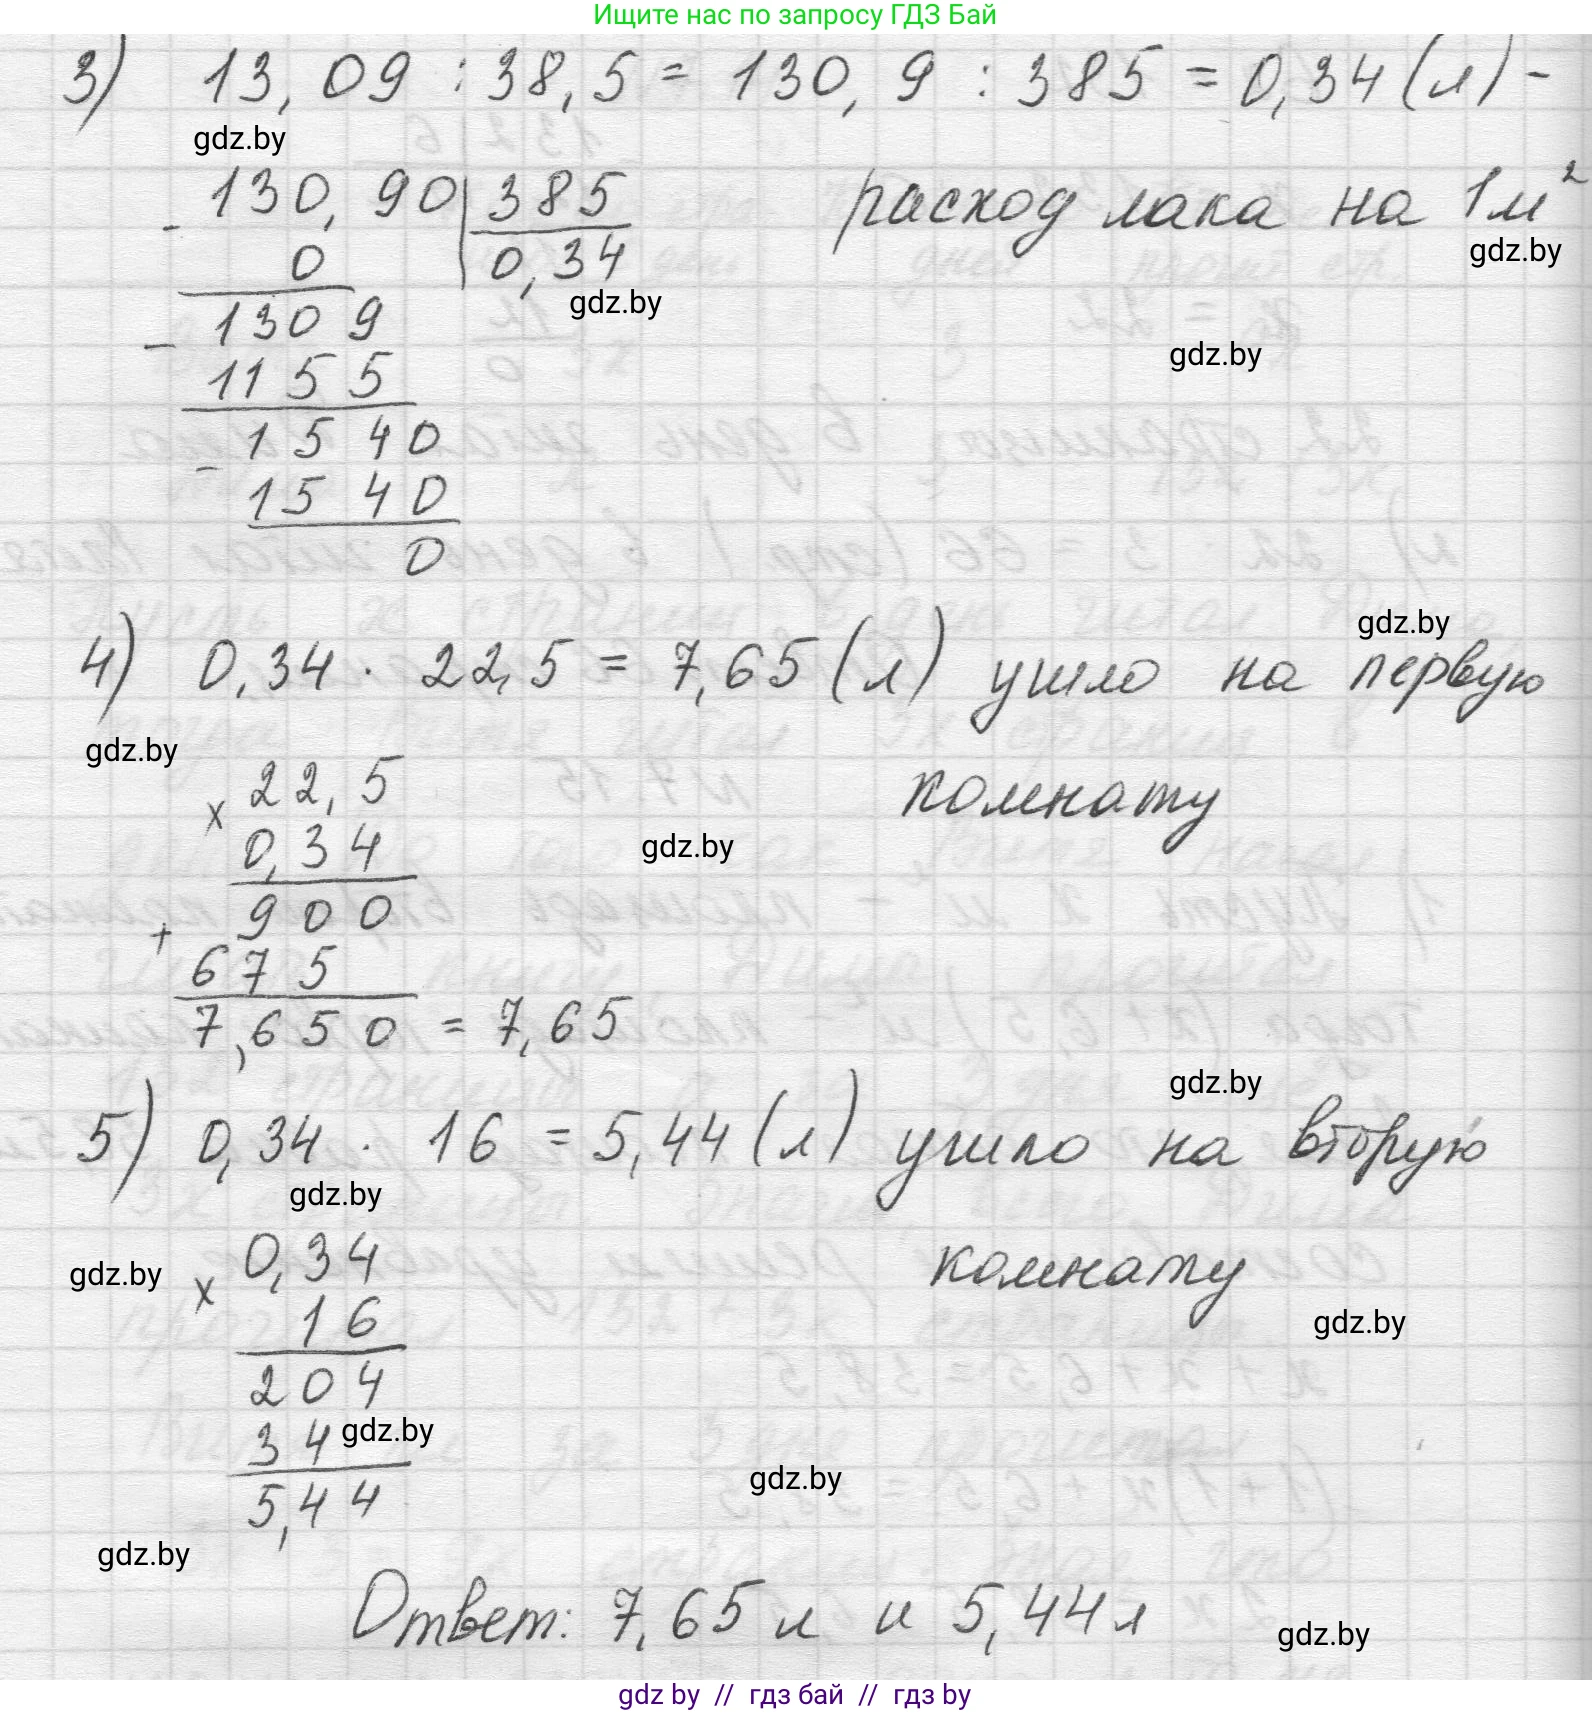 Ищите нас по запросу ГДЗ Бай
3) 13,09 : 38,5 = 130,9 : 385 = 0,34 (л) -
gdz.by
- 130,90 | 385
расход лака на 1м²
gdz.by
0 | 0,34
gdz.by
- 1309
gdz.by
1155
- 1540
1540
0
gdz.by
4) 0,34 · 22,5 = 7,65 (л) ушло на первую
gdz.by
комнату
x 22,5
0,34
gdz.by
+ 900
675
7,650 = 7,65
gdz.by
5) 0,34 · 16 = 5,44 (л) ушло на вторую
gdz.by
комнату
gdz.by
x 0,34
16
gdz.by
204
34
gdz.by
gdz.by
5,44
gdz.by
Ответ: 7,65 л и 5,44 л
gdz.by
gdz by // гдз бай // гдз by